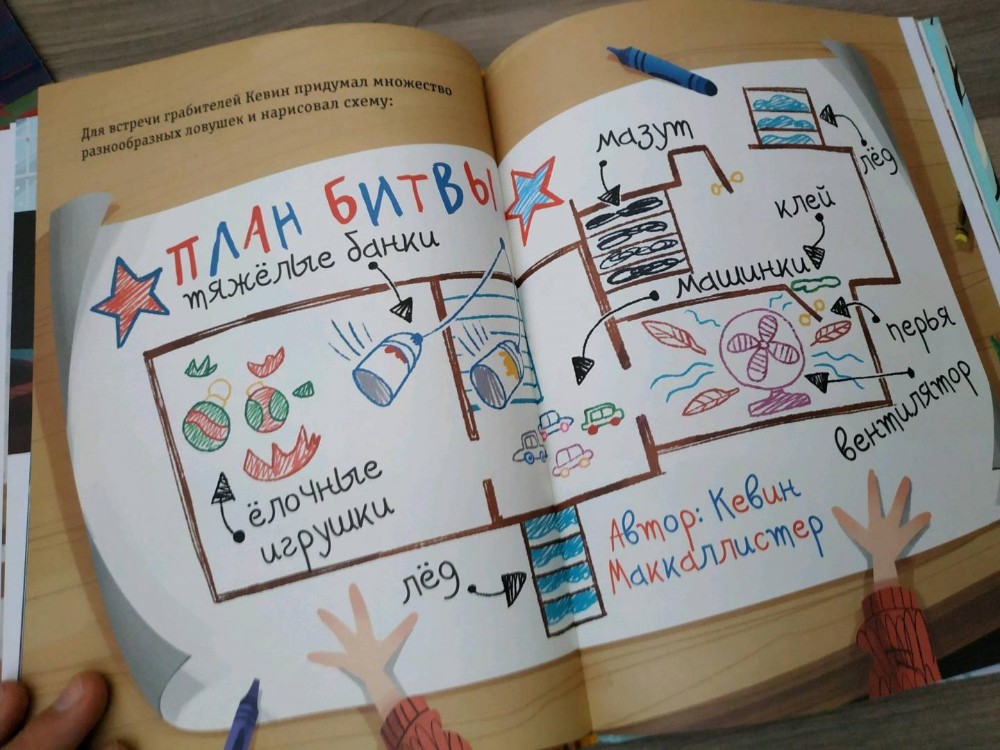 Для встречи грабителей Кевин придумал множество
разнообразных ловушек и нарисовал схему:
ПЛАН БИТВЫ
тяжёлые банки
ёлочные
игрушки
лёд
мазут
лёд
клей
машинки
перья
вентилятор
Автор: Кевин
Маккаллистер